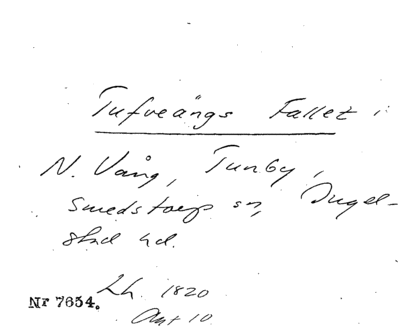 Tufveängs Fallet i
N. Vång, Tunby,
Smedstorp sn, Ingel-
stad hd.
Lh. 1820
Nr 7654.
Akt 10